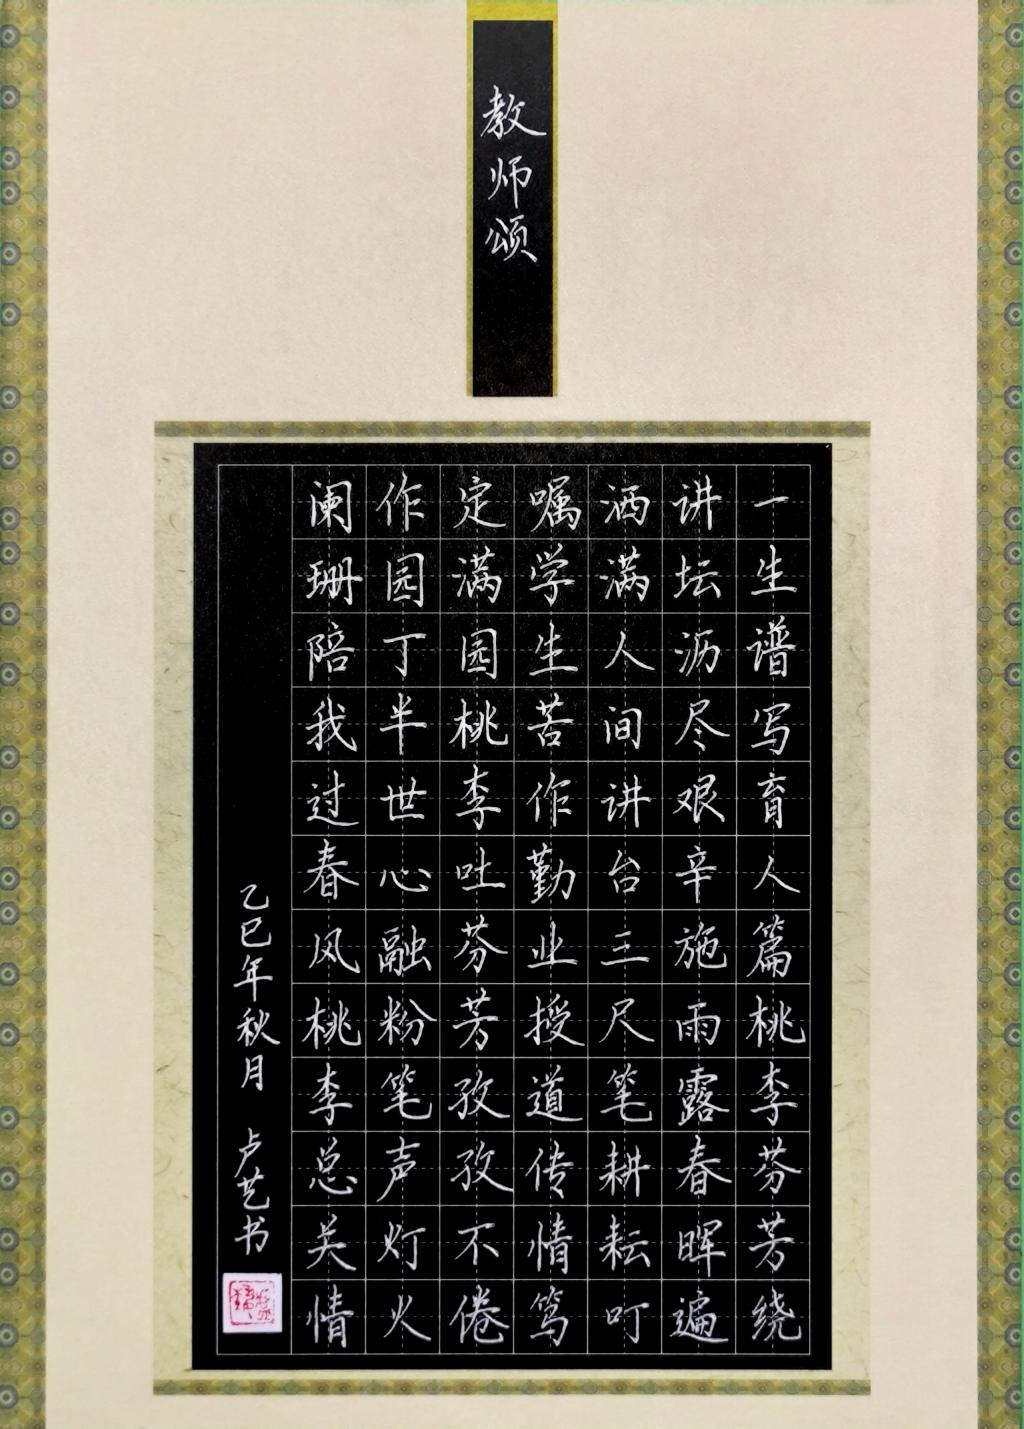 教师颂
一生谱写育人篇桃李芬芳绕
讲坛沥尽艰辛施雨露春晖遍
洒满人间讲台三尺笔耕耘叮
嘱学生苦作勤业授道传情笃
定满园桃李吐芬芳孜孜不倦
作园丁半世心融粉笔声灯火
阑珊陪我过春风桃李总关情
乙巳年秋月 卢艺书